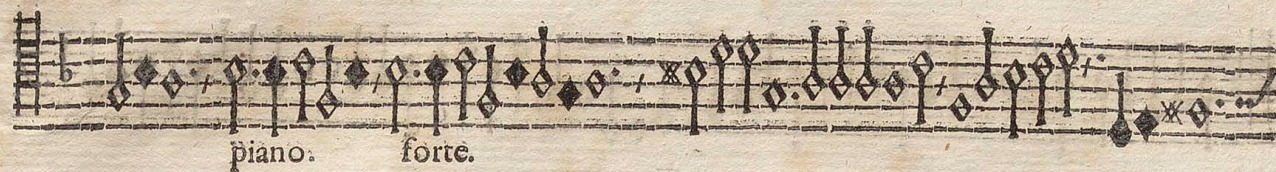 piano. forte.